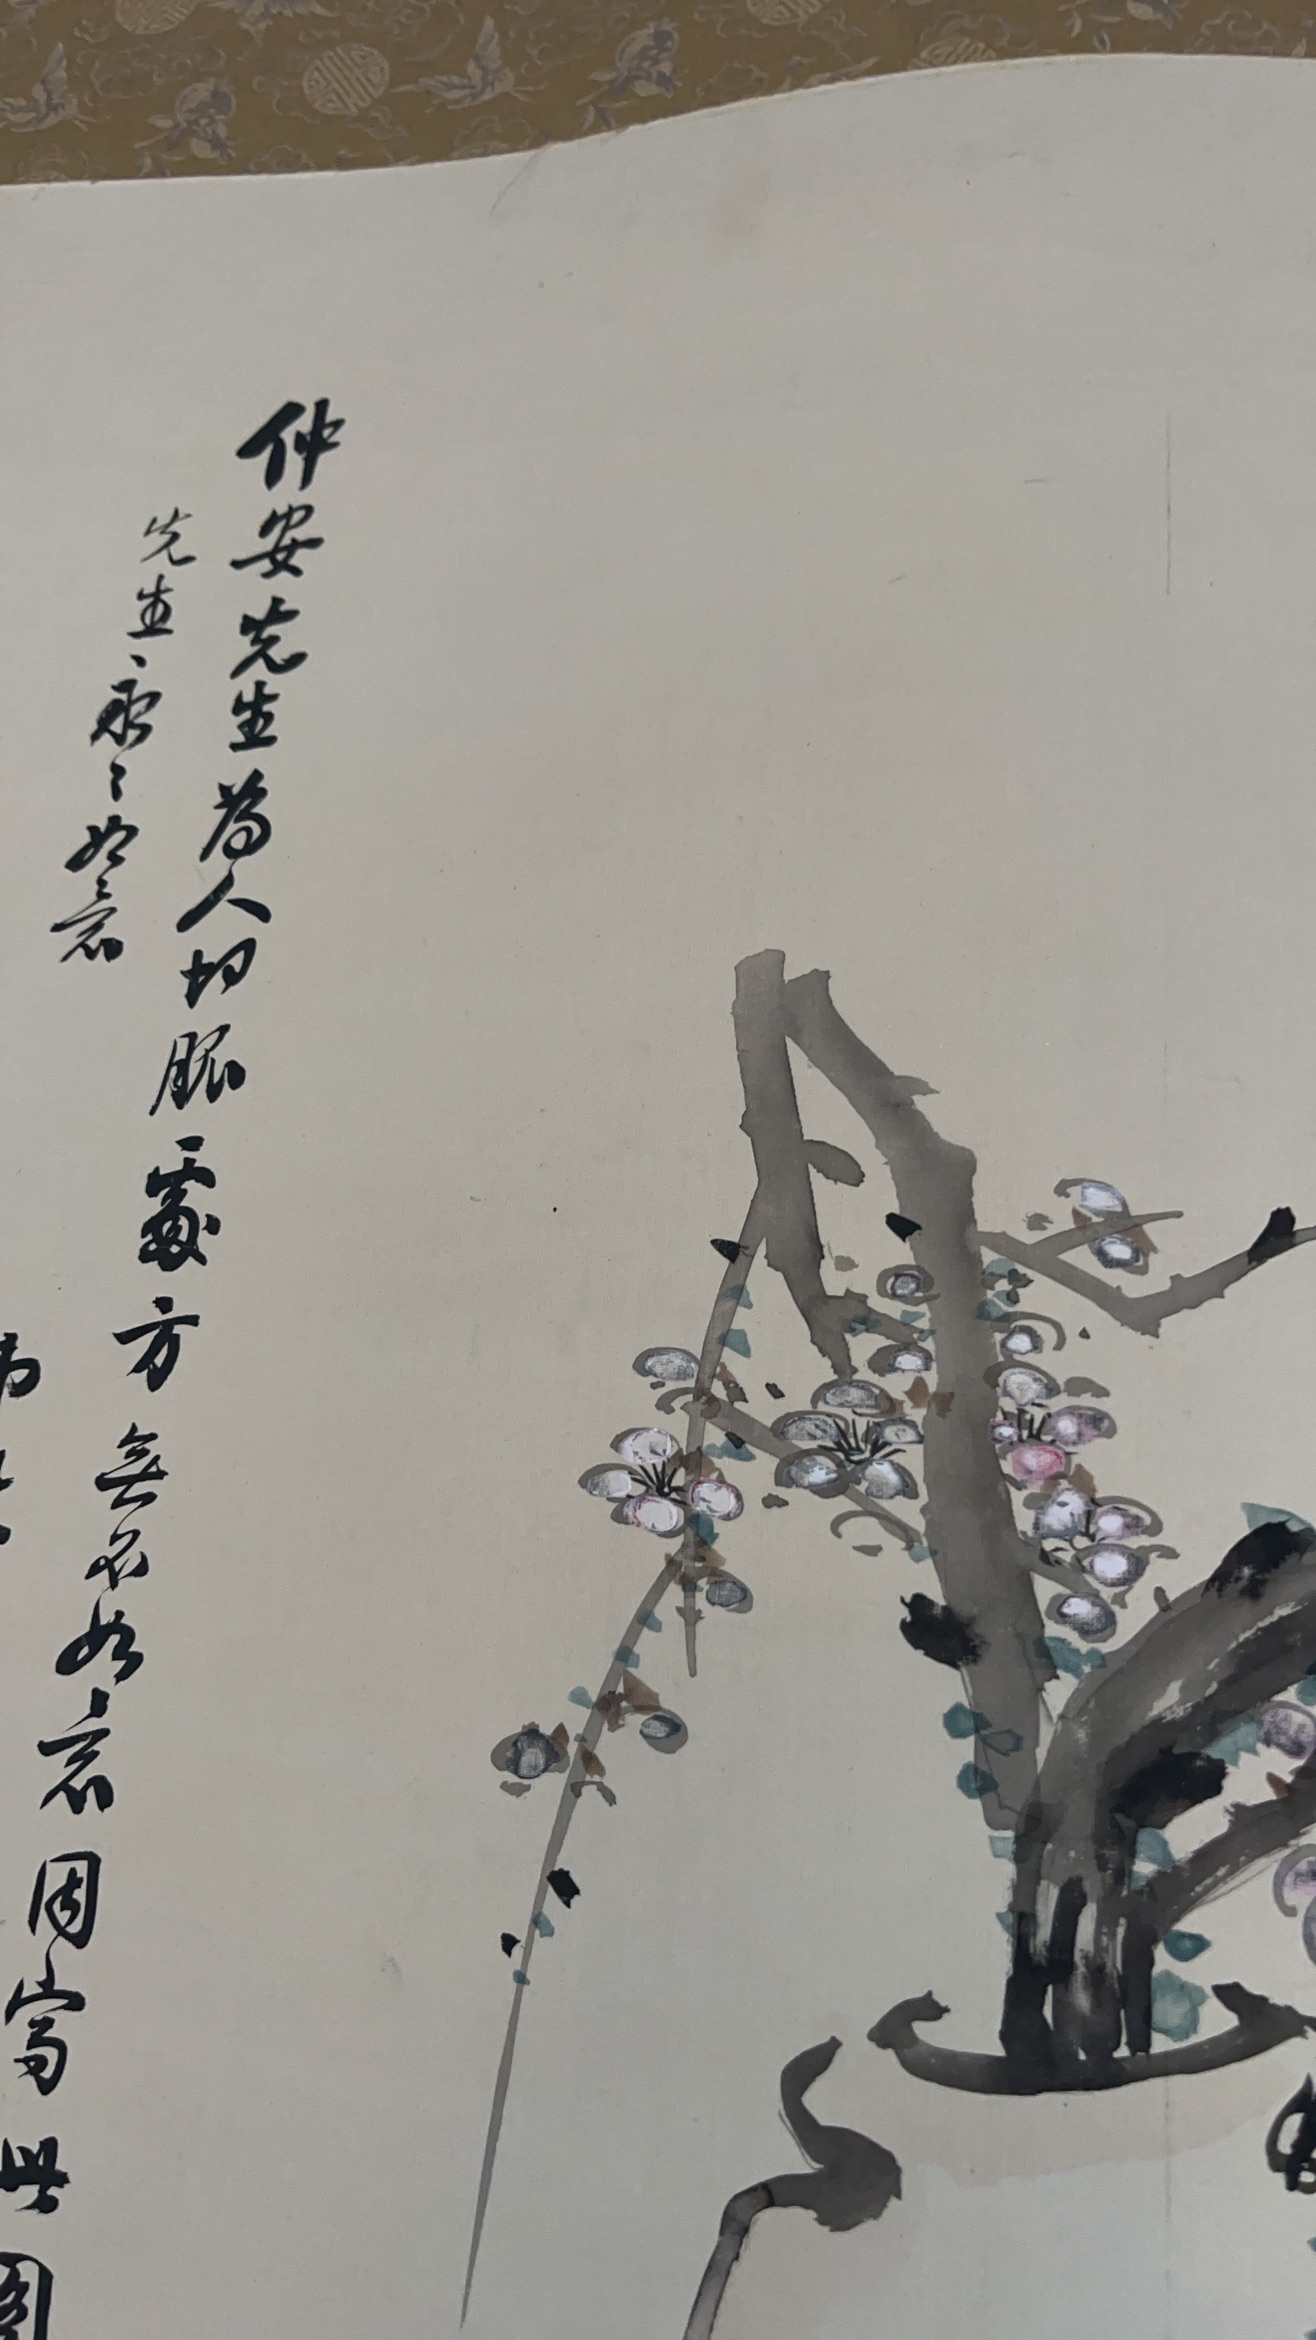 仲安先生為人切脈處方無不如意因寫此圖
先生、永〻如〻意